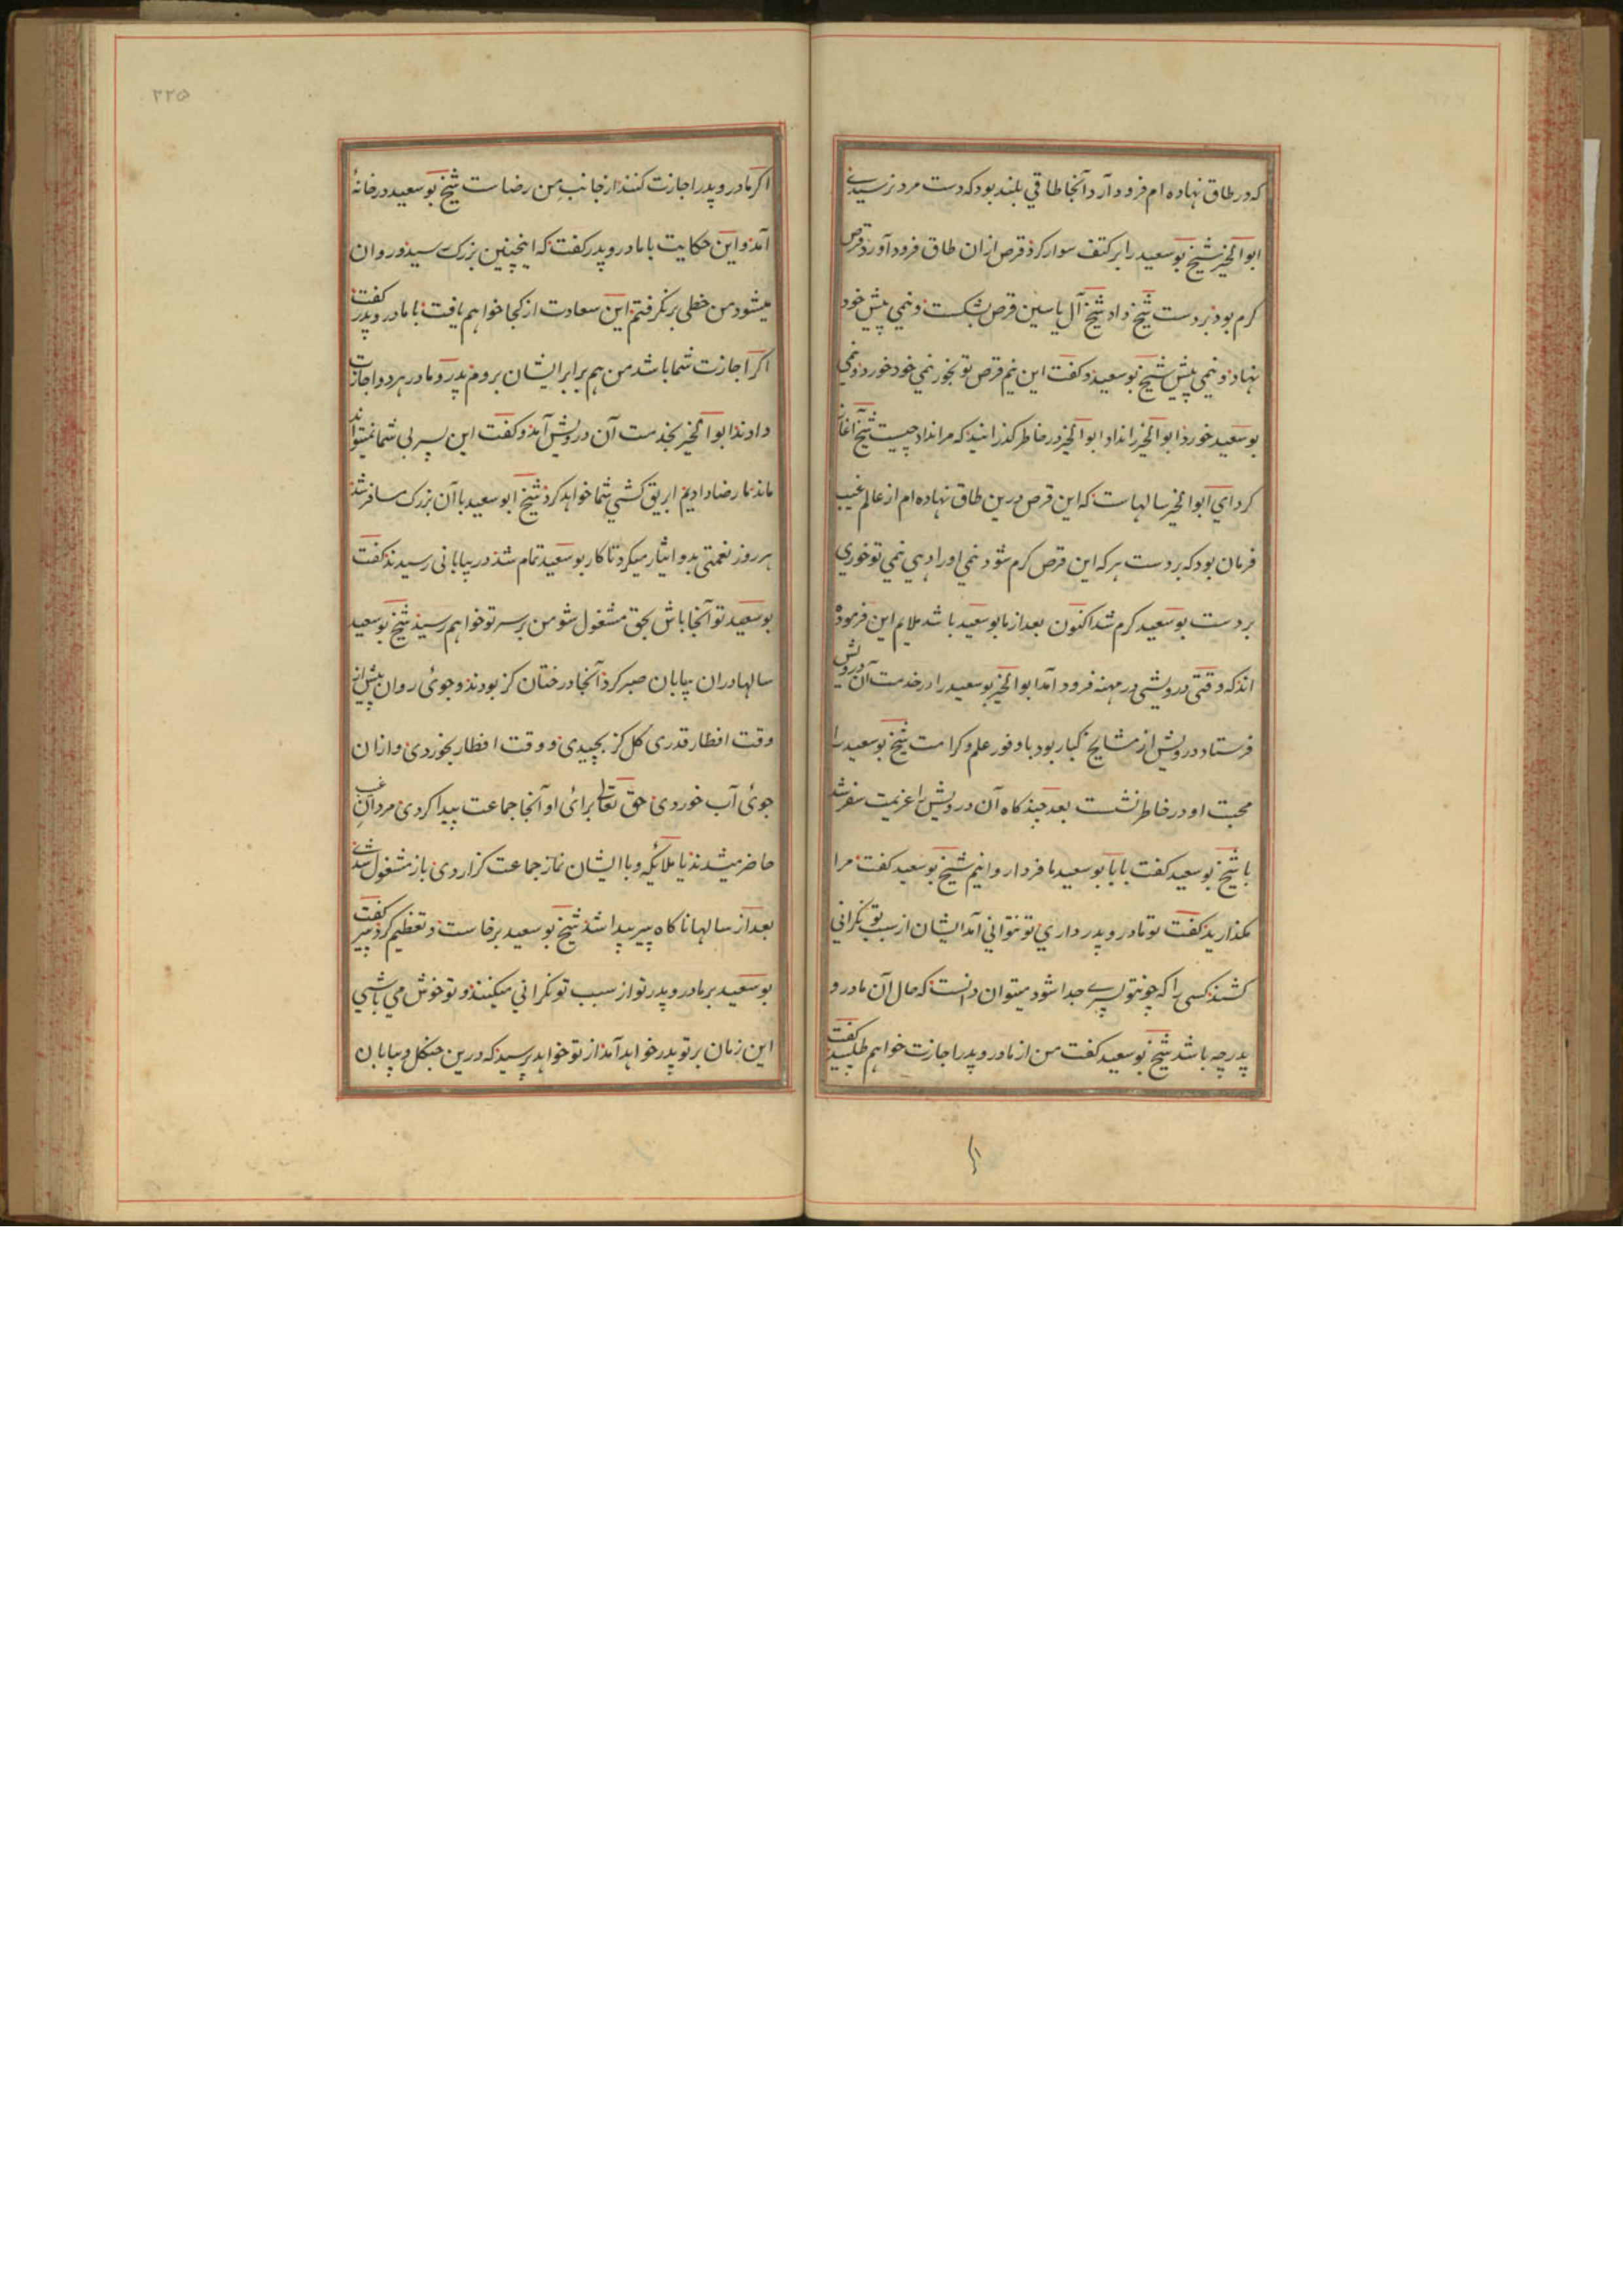 که در طاق نهاده ام فرود آرد آنجا طاقی بلند بود که دست مرد نرسیدی
ابوالخیر شیخ بوسعید را بر کتف سوار کرد قرص ازان طاق فرود آورد قرص
کرم بود بر دست شیخ داد شیخ آل یاسین قرص بشکست و نیمی پیش خود
نهاد و نیمی پیش شیخ بوسعید و کفت این نیم قرص تو بخور نیمی خود خورد و نیمی
بوسعید خورد ابوالخیر را نداد ابوالخیر در خاطر کذرانید که مرا نداد چیست شیخ آغاز
کرد ای ابوالخیر سالهاست که این قرص درین طاق نهاده ام از عالم غیب
فرمان بود که بر دست هر که این قرص کرم شود نیمی او را دهی نیمی تو خوری
بر دست بوسعید کرم شد اکنون بعد از ما بوسعید باشد ملایم این فرموده
اند که وقتی درویشی در مهنه فرود آمد ابوالخیر بوسعید را در خدمت آن درویش
فرستاد درویش از مشایخ کبار بود با وفور علم و کرامت شیخ بوسعید را
محبت او در خاطر نشست بعد چند کاه آن درویش را عزیمت سفر شد
با شیخ بوسعید کفت بابا بوسعید ما فردا روانیم شیخ بوسعید کفت مرا
مکذارید کفت تو مادر و پدر داری تو نتوانی آمد ایشان از سبب تو نکرانی
کشند کسی را که چونتو پسری جدا شود میتوان دانست که حال آن مادر و
پدر چه باشد شیخ بوسعید کفت من از مادر و پدر اجازت خواهم طلبید کفت
۲۲۵
اکر مادر و پدر اجازت کنند از جانب من رضاست شیخ بوسعید در خانهٔ
آمد و این حکایت با مادر و پدر کفت که اینچنین بزرک رسید و روان
میشود من حظی برنکرفتم این سعادت از کجا خواهم یافت با مادر و پدر کفت
اکر اجازت شما باشد من هم برابر ایشان بروم پدر و مادر هر دو اجازت
دادند ابوالخیر بخدمت آن درویش آمد و کفت این پسر بی شما نمیتواند
ماند ما رضا دادیم ابریق کشی شما خواهد کرد شیخ ابوسعید با آن بزرک مسافر شد
هر روز نعمتی بدو ایثار میکرد تا کار بوسعید تمام شد در بیابانی رسیدند کفت
بوسعید تو آنجا باش بحق مشغول شو من بر سر تو خواهم رسید شیخ بوسعید
سالها دران بیابان صبر کرد آنجا درختان کز بودند و جوئی روان پیش از
وقت افطار قدری کل کز بچیدی و وقت افطار بخوردی و ازان
جوئی آب خوردی حق تعالی برائی او آنجا جماعت پیدا کردی مردان غیب
حاضر میشدند یا ملائکه و با ایشان نماز جماعت کزاردی باز مشغول شدی
بعد از سالها ناکاه پیر پیدا شد شیخ بوسعید برخاست و تعظیم کرد پیر کفت
بوسعید بر مادر و پدر تو از سبب تو نکرانی میکنند و تو خوش می باشی
این زمان بر تو پدر خواهد آمد از تو خواهد پرسید که درین جنکل و بیابان